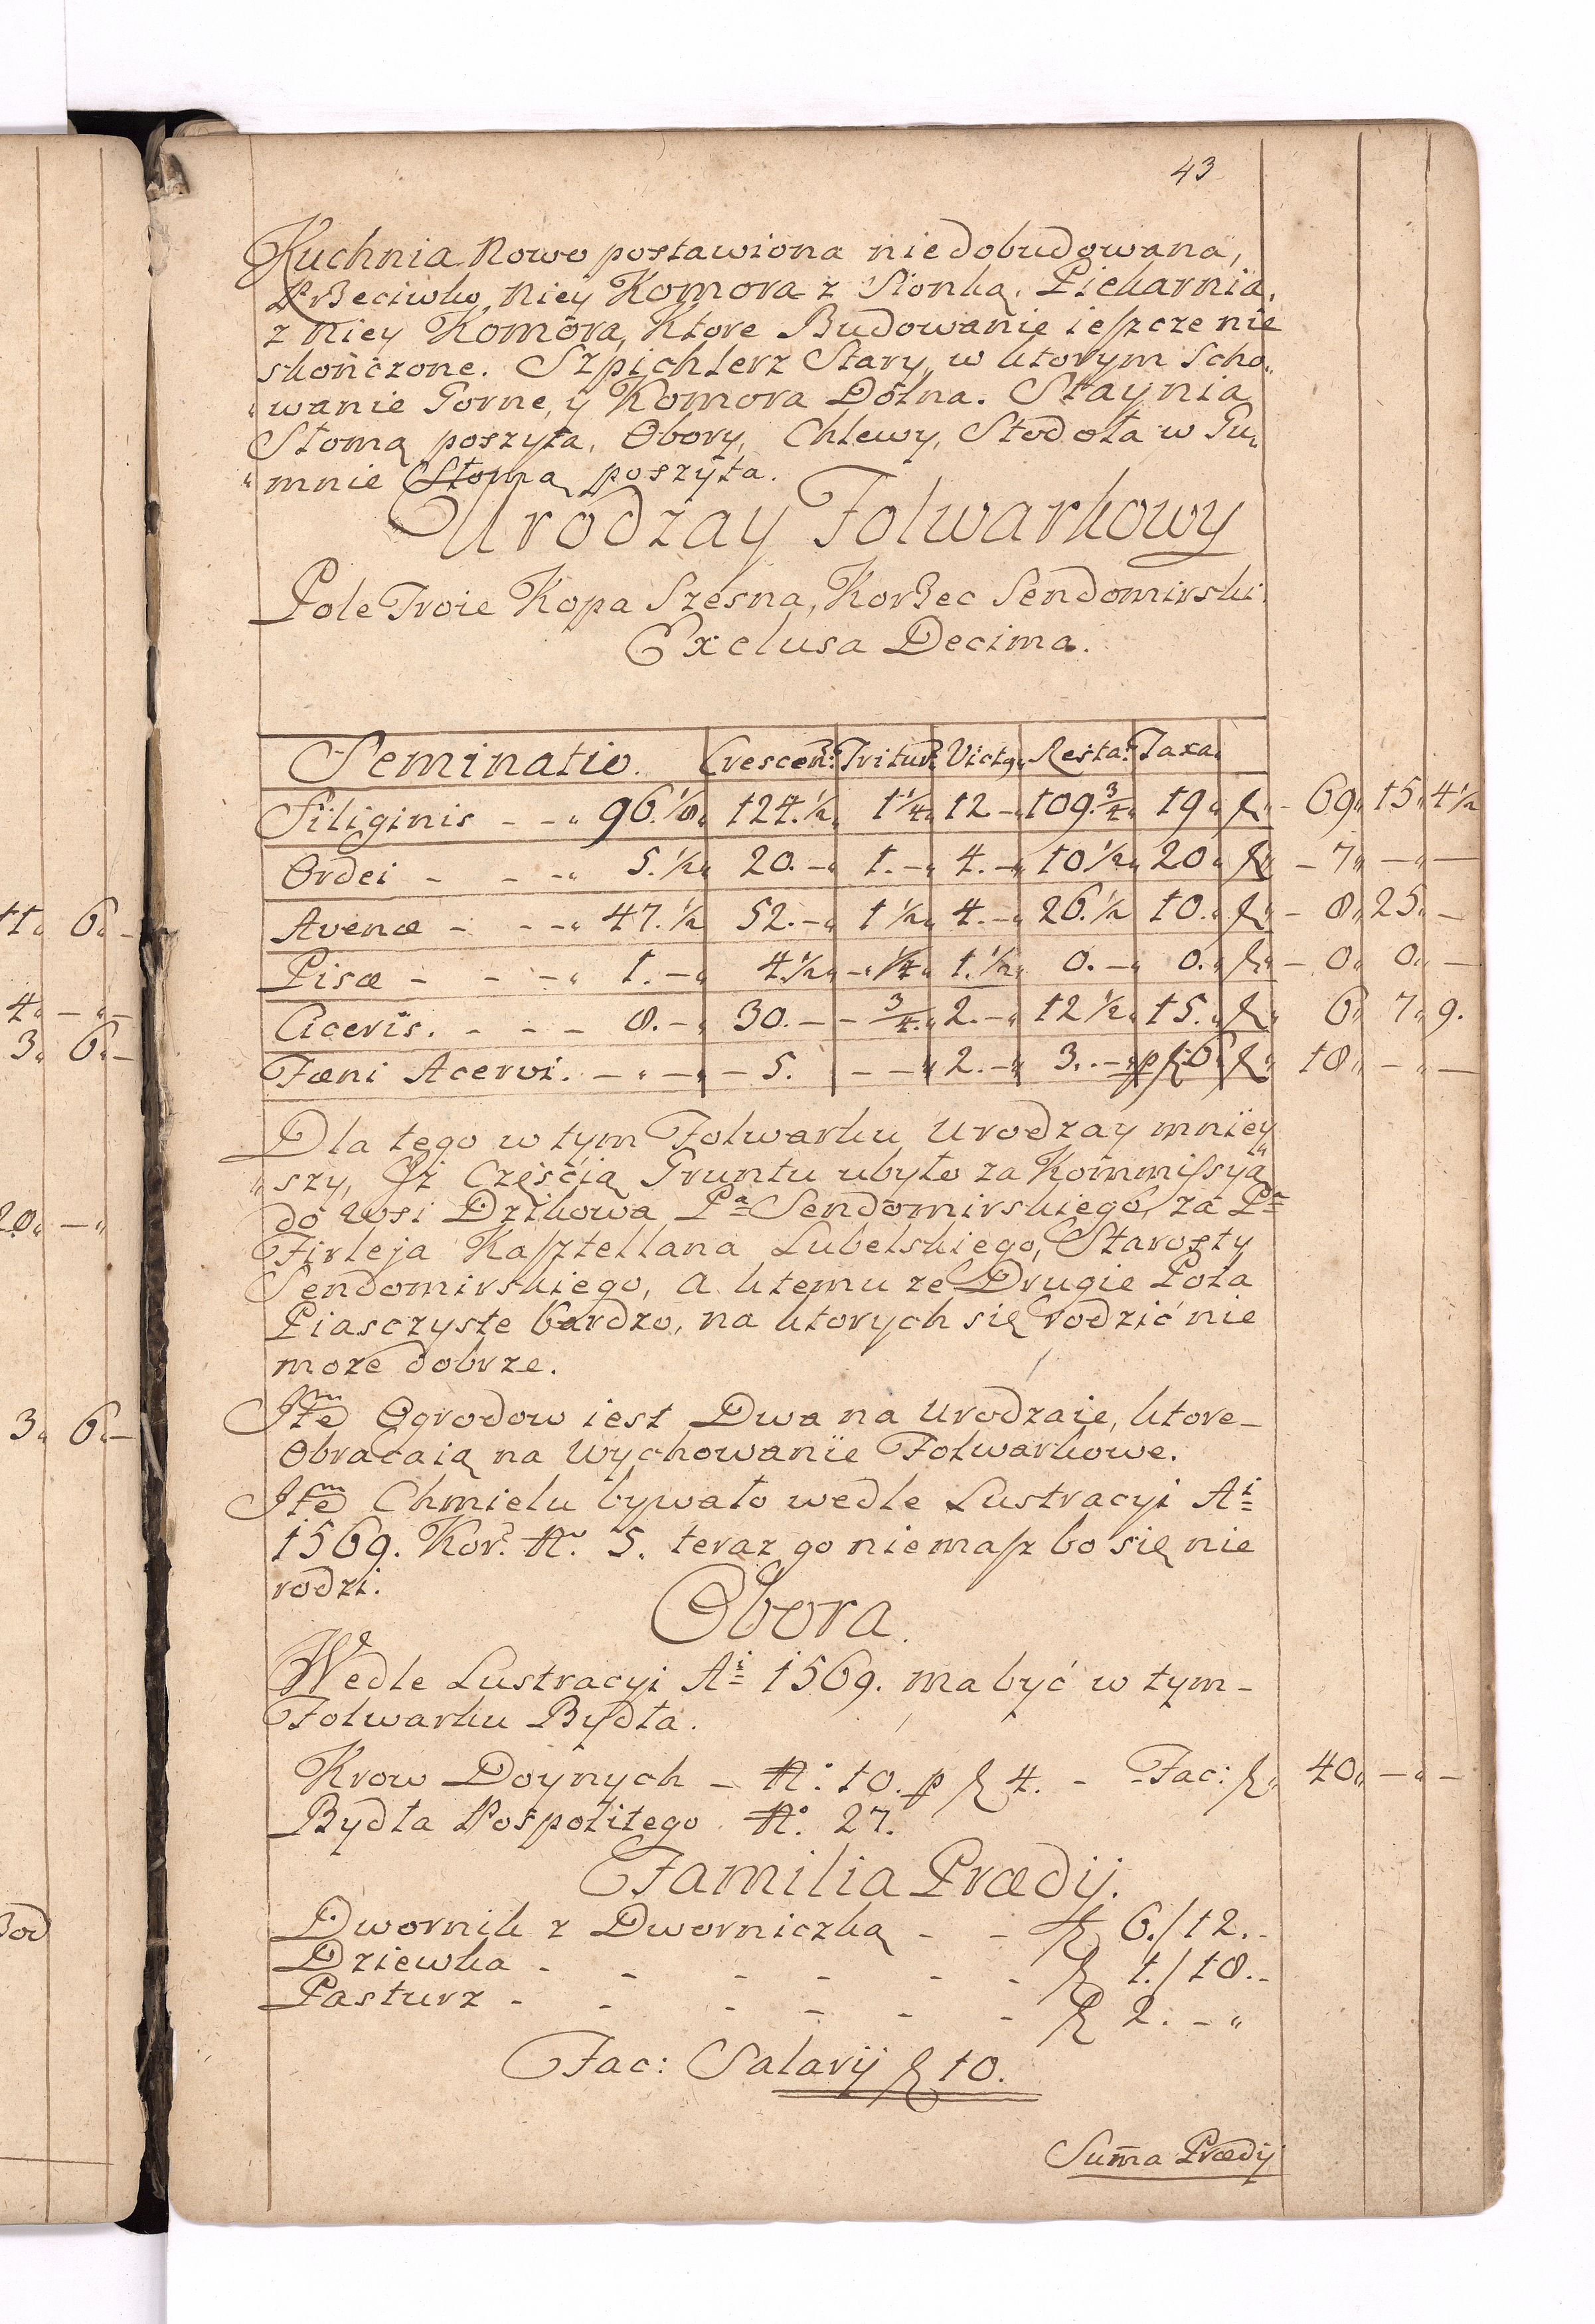 43
Kuchnia Nowo postawiona niedobudowana,
Przeciwko Niey Komora z Sionką. Piekarnia,
z Niey Komora, Ktore Budowanie ieszcze nie
skończone. Szpichlerz Stary, w ktorym Scho„
„wanie Gorne, ÿ Komora Dolna. Staynia
Słomą poszyta, Obory, Chlewy, Stodoła w Gu„
„mnie Słomą poszyta.
Urodzay Folwarkowy
Pole Troie Kopa Szesna, Korzec Sendomirski
Exclusa Decima.
Seminatio. Crescen: Tritur: Victg„ Resta: Taxa„
Siliginis - - „ 96.⅛„ 124.½„ 1¼„ 12.-„ 109.¾„ 19„ f„ - 69„ 15„ 4½
Ordei - - - „ 5.½„ 20.-„ 1.-„ 4.-„ 10½„ 20„ f„ - 7„ -„ -
Avenæ - - - „ 47.½ 52.-„ 1½„ 4.-„ 26.½ 10.„ f„ - 8„ 25„ -
Pisæ - - - „ 1.-„ 4.½„ -„¼„ 1.½„ 0.-„ 0.„ f„ - 0„ 0„ -
Ciceris. - - - 8.-„ 30.- - ¾.„ 2.-„ 12½„ 15.„ f„ 6„ 7„ 9.
Fæni Acervi. - „ -„ - 5. - -„ 2.-„ 3.-„ p f 6 f„ 18„ -„ -
Dla tego w tym Folwarku Urodzay mnięy„
„szy, Jż Częścią Gruntu ubyło za Kommissyą
do Wsi Dzikowa Pª Sendomirskiego, za Pª
Firleja Kasztellana Lubelskiego, Starosty
Sendomirskiego, A ktemu ze Drugie Pola
Piasczyste bardzo, na ktorych się rodzić nie
może dobrze.
Jtem Ogrodow iest Dwa na Urodzaie, ktore-
Obracaią na Wychowanie Folwarkowe.
Jtem Chmielu bywało wedle Lustracyi Ai
1569. Kor: N. 5. teraz go niemasz bo się nie
rodzi.
Obora.
Wedle Lustracyi Ai 1569. ma być w tym-
Folwarku Bydła.
Krow Doynych - No: 10. p f 4. - Fac: f„ 40„ -„ -
Bydła Pospolitego No: 27.
Familia Prædij.
Dwornik z Dworniczką - - f 6./12.-
Dziewka - - - - - - f 1./18.-
Pasturz - - - - - - f 2. -„
Fac: Salarij f 10.
Sum̄a Prædij